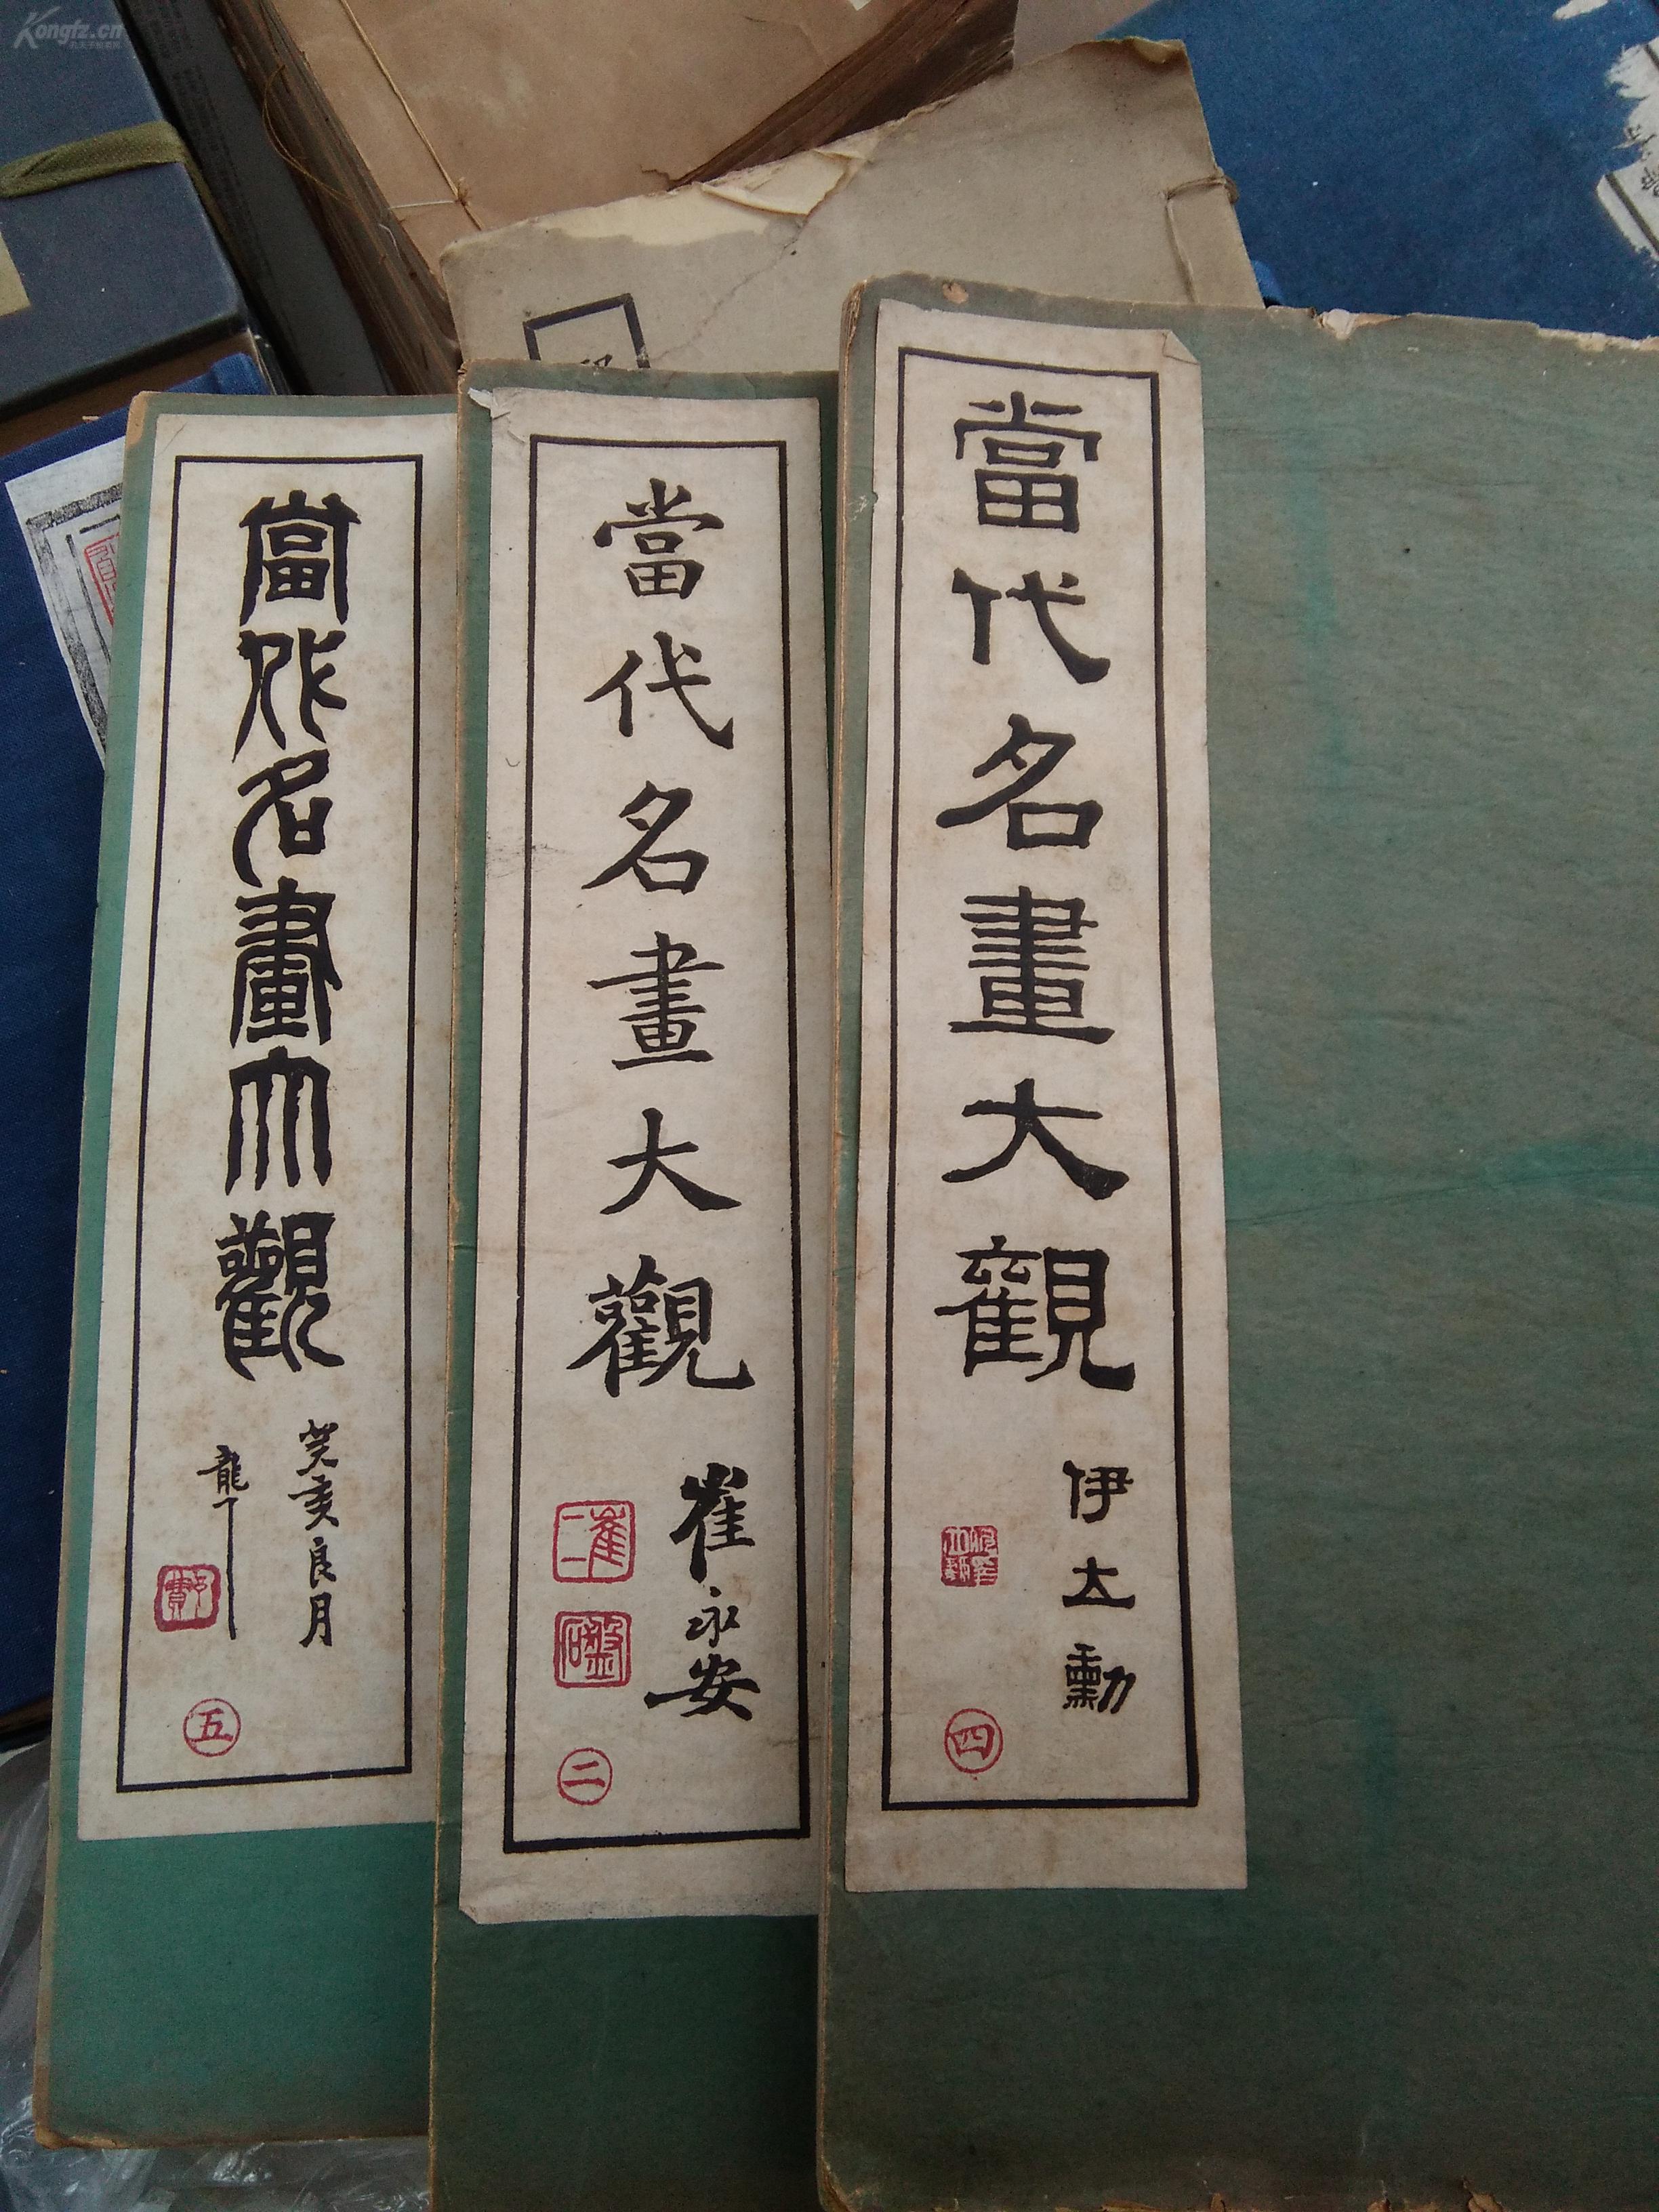 Kongfz.cn
當代名畫大觀
伊立勳
四
當代名畫大觀
崔永安
二
當代名畫大觀
癸亥良月
龍丁
五